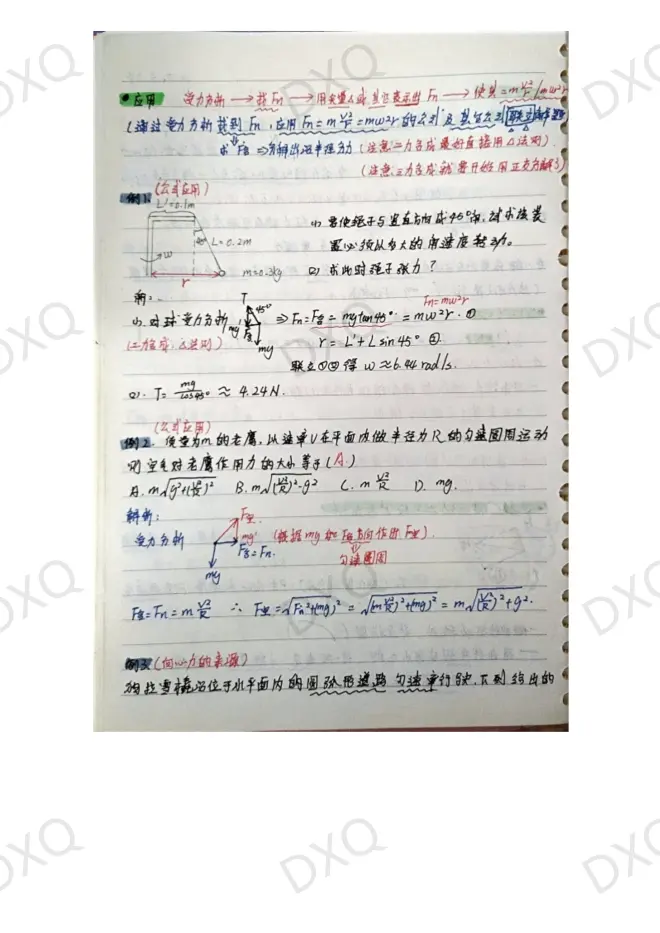 •应用 受力分析 → 找Fn → 用矢量△或其它表示出Fn → 使其=mv²/r/mω²r
(通过受力分析找到Fn,应用Fn=mv²/r=mω²r的公式及
求F合 ⇒ 分析出
(注意:二力合成最好直接用△法则)
(注意:三力合成就要开始用正交分解了)
例1. (公式应用)
L'=0.1m
L=0.2m
ω
r
m=0.3kg
(1) 若使绳子与竖直方向成45°角,试求该装
置必须以多大的角速度转动。
(2) 求此时绳子张力?
解:
Fn=mω²r
(1). 对球受力分析 T 45° mg' F合 mg ⇒ Fn=F合=mgtan45°=mω²r ①
(二力合成:△法则) r=L'+Lsin45° ②
联立①②得 ω≈6.44rad/s.
(2). T=mg/cos45° ≈ 4.24N.
(公式应用)
例2. 质量为m的老鹰,以速率V在平面内做半径为R的匀速圆周运动
则空气对老鹰作用力的大小等于(A.)
A. m√(g²+(v²/R)²) B. m√((v²/R)²-g²) C. m v²/R D. mg.
解析:
受力分析 F空 mg' F合=Fn. mg (根据mg和F合方向作出F空).
匀速圆周
F合=Fn=m v²/R ∴ F空=√(Fn²+(mg)²)=√((m v²/R)²+(mg)²)=m√((v²/R)²+g².
例3.(向心力的来源)
狗拉雪橇沿位于水平面内的圆弧形道路匀速率行驶.下列给出的
DXQ
DXQ
DXQ
DXQ
DXQ
DXQ
DXQ
DXQ
DXQ
DXQ
DXQ
DXQ